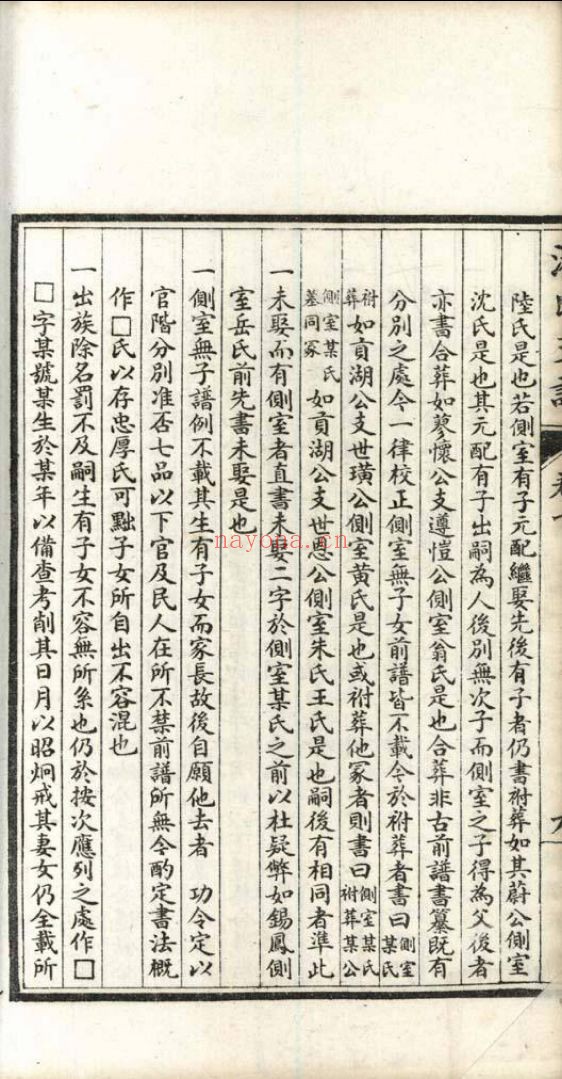 陸氏是也若側室有子元配繼娶先後有子者仍書祔葬如其蔚公側室
沈氏是也其元配有子出嗣為人後別無次子而側室之子得為父後者
亦書合葬如蓼懷公支遵愷公側室翁氏是也合葬非古前譜書纂既有
分別之處今一律校正側室無子女前譜皆不載今於祔葬者書曰側室某氏
祔葬如貢湖公支世璜公側室黃氏是也或祔葬他冢者則書曰側室某氏祔葬某公
側室某氏墓同冢如貢湖公支世恩公側室朱氏王氏是也嗣後有相同者準此
一未娶而有側室者直書未娶二字於側室某氏之前以杜疑弊如錫鳳側
室岳氏前先書未娶是也
一側室無子譜例不載其生有子女而家長故後自願他去者 功令定以
官階分別准否七品以下官及民人在所不禁前譜所無今酌定書法概
作□氏以存忠厚氏可黜子女所自出不容混也
一出族除名罰不及嗣生有子女不容無所系也仍於按次應列之處作□
□字某號某生於某年以備查考削其日月以昭炯戒其妻女仍全載所
nayona.cn